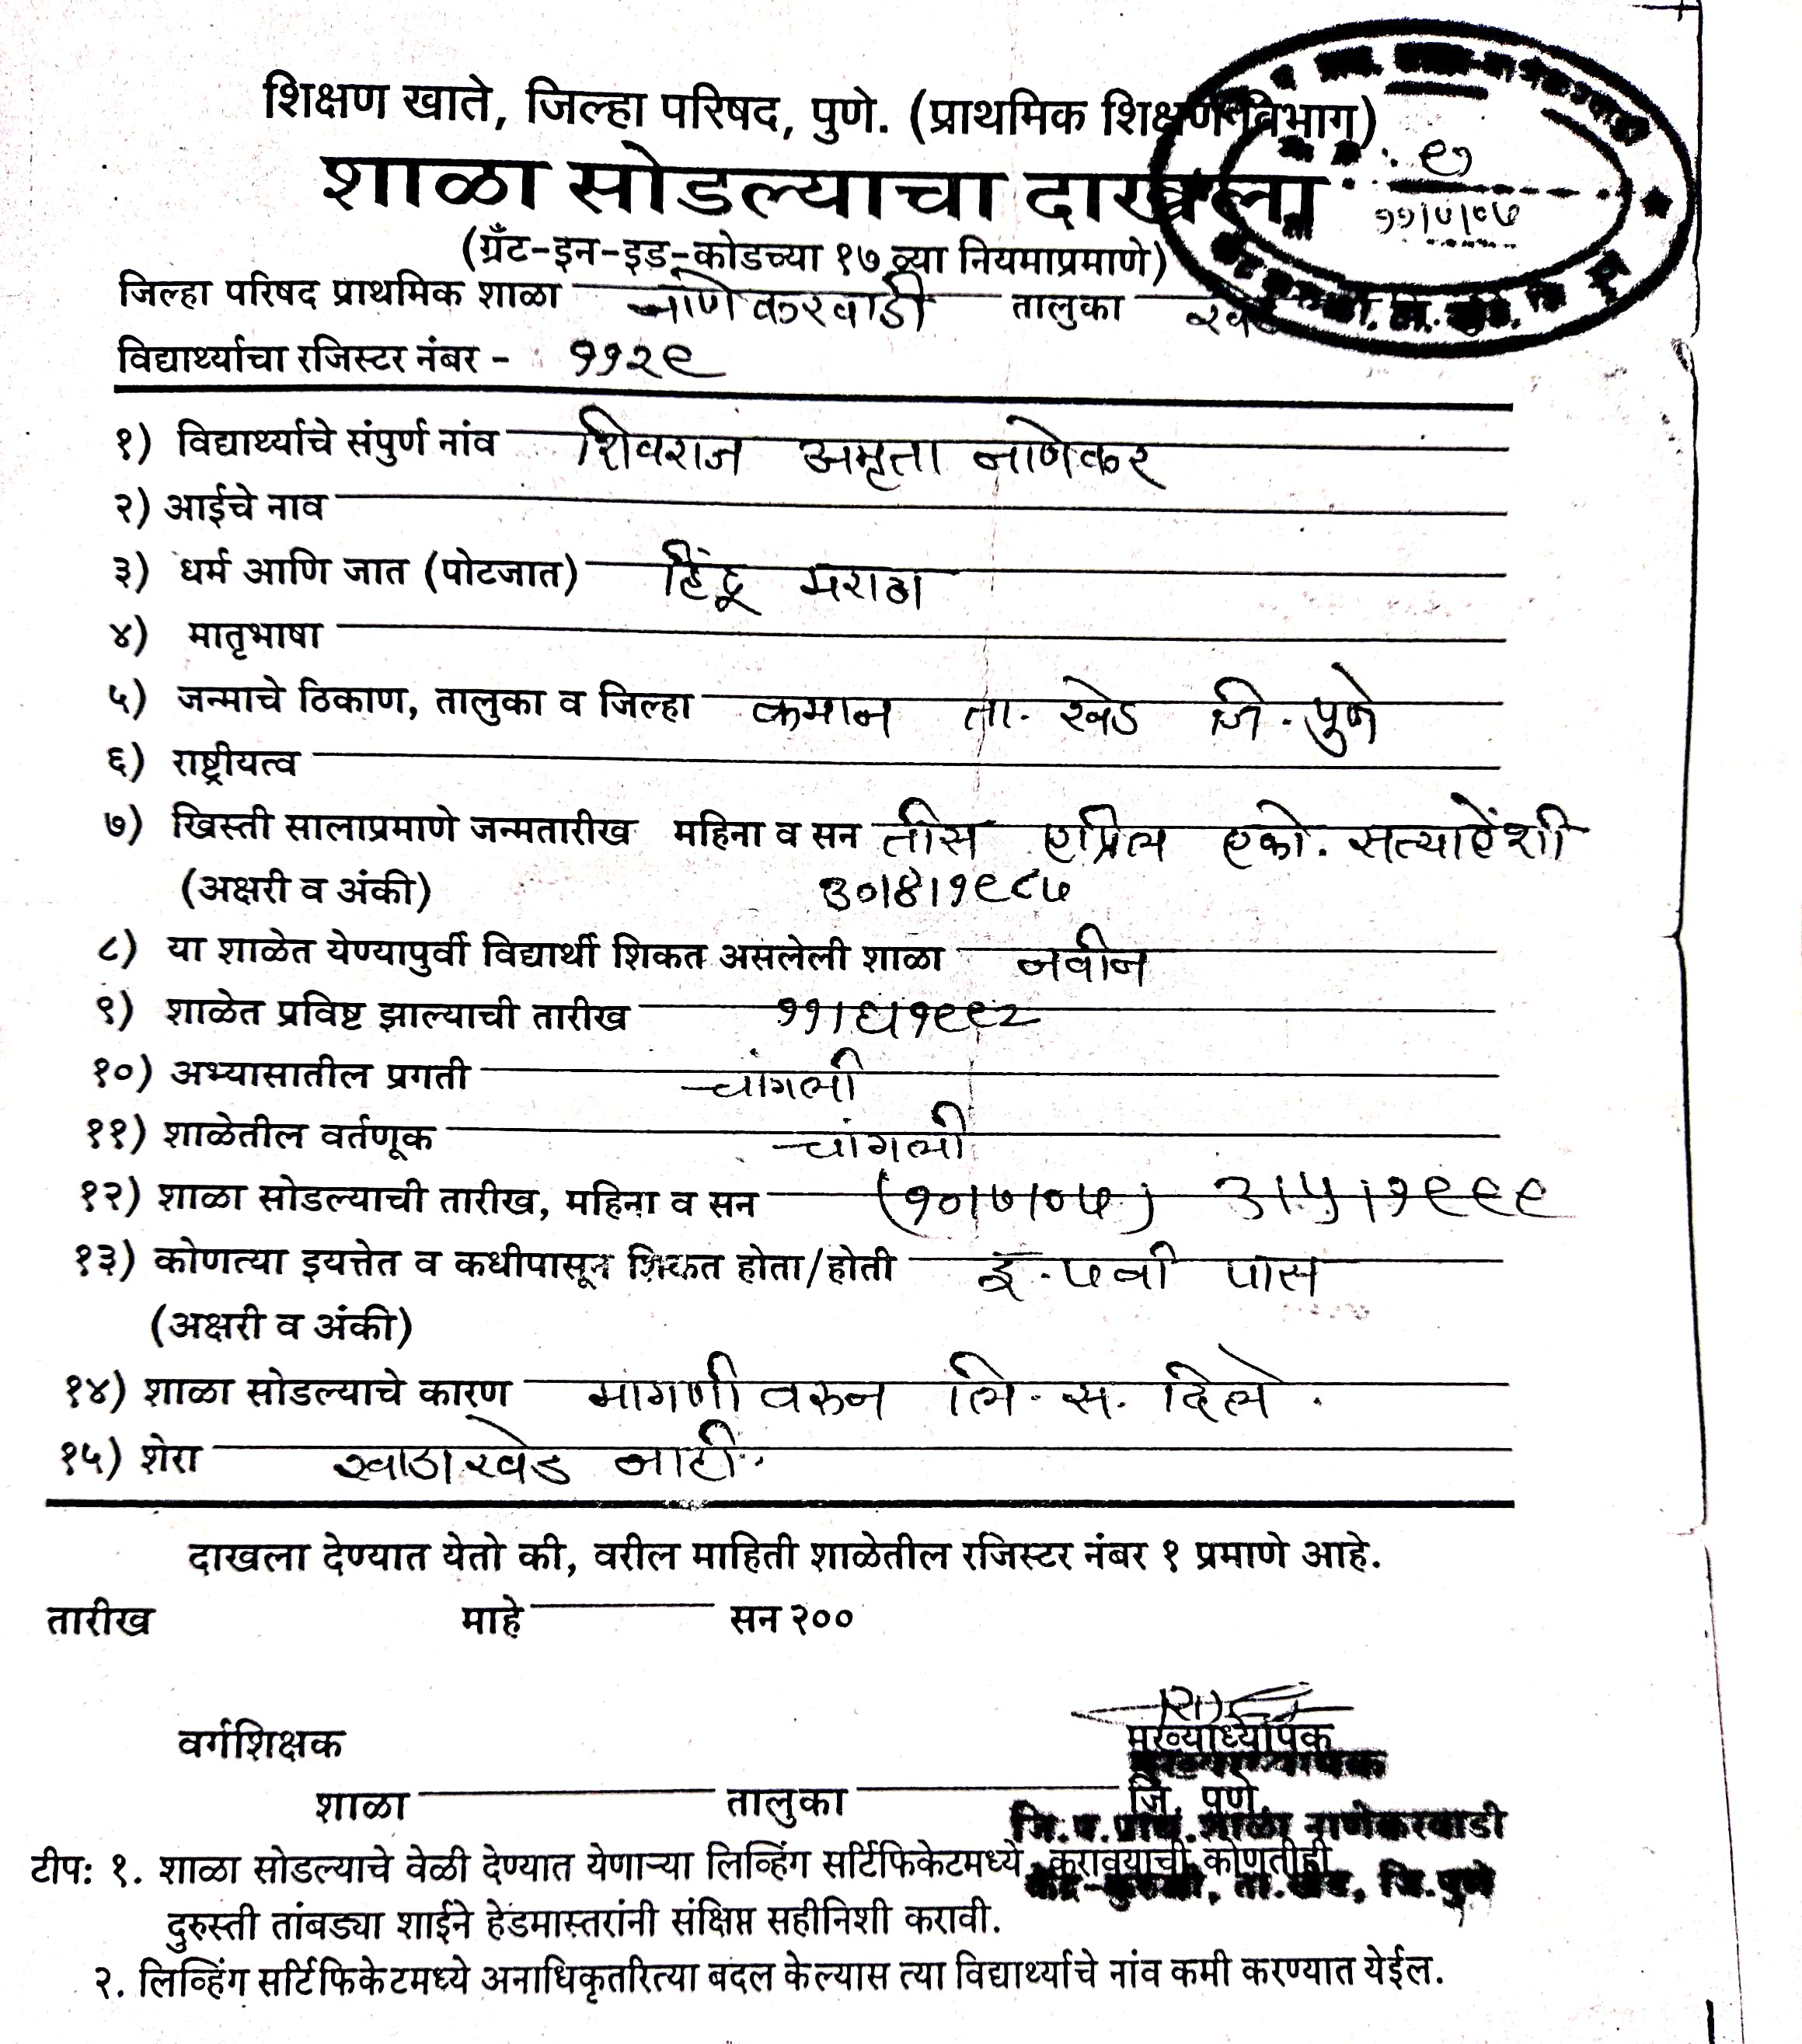 शिक्षण खाते, जिल्हा परिषद, पुणे. (प्राथमिक शिक्षण विभाग)
शाळा सोडल्याचा दाखला
(ग्रँट-इन-इड-कोडच्या १७ व्या नियमाप्रमाणे)
जिल्हा परिषद प्राथमिक शाळा नाणेकरवाडी तालुका खेड
विद्यार्थ्याचा रजिस्टर नंबर - ११२९
१) विद्यार्थ्याचे संपुर्ण नांव शिवराज अमृता नाणेकर
२) आईचे नाव
३) धर्म आणि जात (पोटजात) हिंदू मराठा
४) मातृभाषा
५) जन्माचे ठिकाण, तालुका व जिल्हा कमान ता. खेड जि. पुणे
६) राष्ट्रीयत्व
७) खिस्ती सालाप्रमाणे जन्मतारीख महिना व सन तीस एप्रिल एको. सत्याऐंशी
(अक्षरी व अंकी) ३०/४/१९८७
८) या शाळेत येण्यापुर्वी विद्यार्थी शिकत असलेली शाळा नवीन
९) शाळेत प्रविष्ट झाल्याची तारीख ११/६/१९९२
१०) अभ्यासातील प्रगती चांगली
११) शाळेतील वर्तणूक चांगली
१२) शाळा सोडल्याची तारीख, महिना व सन (१०/७/०७) ३/५/१९९९
१३) कोणत्या इयत्तेत व कधीपासून शिकत होता/होती इ. ७वी पास
(अक्षरी व अंकी)
१४) शाळा सोडल्याचे कारण मागणी वरुन लि. स. दिले.
१५) शेरा खाडाखेड नाही.
दाखला देण्यात येतो की, वरील माहिती शाळेतील रजिस्टर नंबर १ प्रमाणे आहे.
तारीख माहे सन २००
वर्गशिक्षक मुख्याध्यापक
शाळा तालुका जि. पुणे.
जि.प.प्राथ.शाळा नाणेकरवाडी
टीप: १. शाळा सोडल्याचे वेळी देण्यात येणाऱ्या लिव्हिंग सर्टिफिकेटमध्ये करावयाची कोणतीही
ता.खेड, जि.पुणे
दुरुस्ती तांबड्या शाईने हेडमास्तरांनी संक्षिप्त सहीनिशी करावी.
२. लिव्हिंग सर्टिफिकेटमध्ये अनाधिकृतरित्या बदल केल्यास त्या विद्यार्थ्याचे नांव कमी करण्यात येईल.